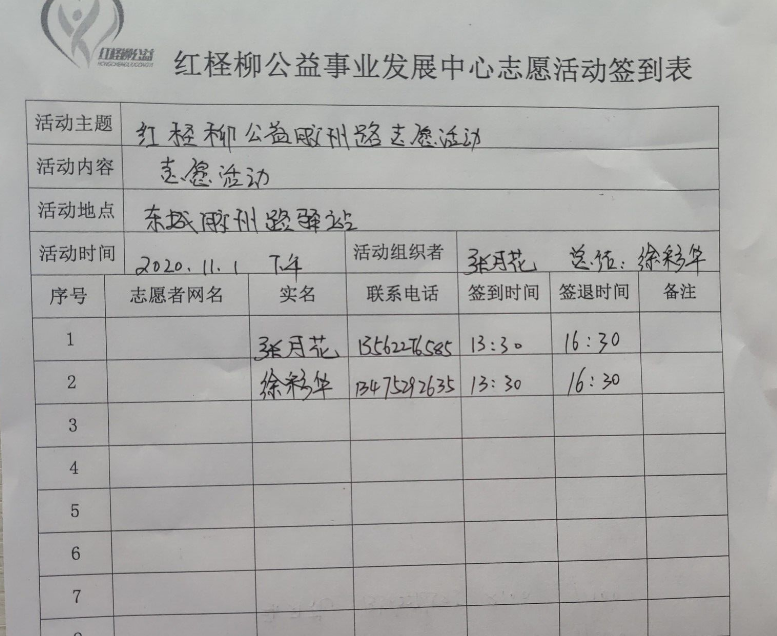 红柽柳公益
HONGCHENGLIUGONGYI
红柽柳公益事业发展中心志愿活动签到表
活动主题 红柽柳公益胶州路志愿活动
活动内容 志愿活动
活动地点 东城胶州路驿站
活动时间 2020.11.1 下午 活动组织者 张月花 总结：徐彩华
序号 志愿者网名 实名 联系电话 签到时间 签退时间 备注
1 张月花 13562276585 13:30 16:30
2 徐彩华 13475292635 13:30 16:30
3
4
5
6
7